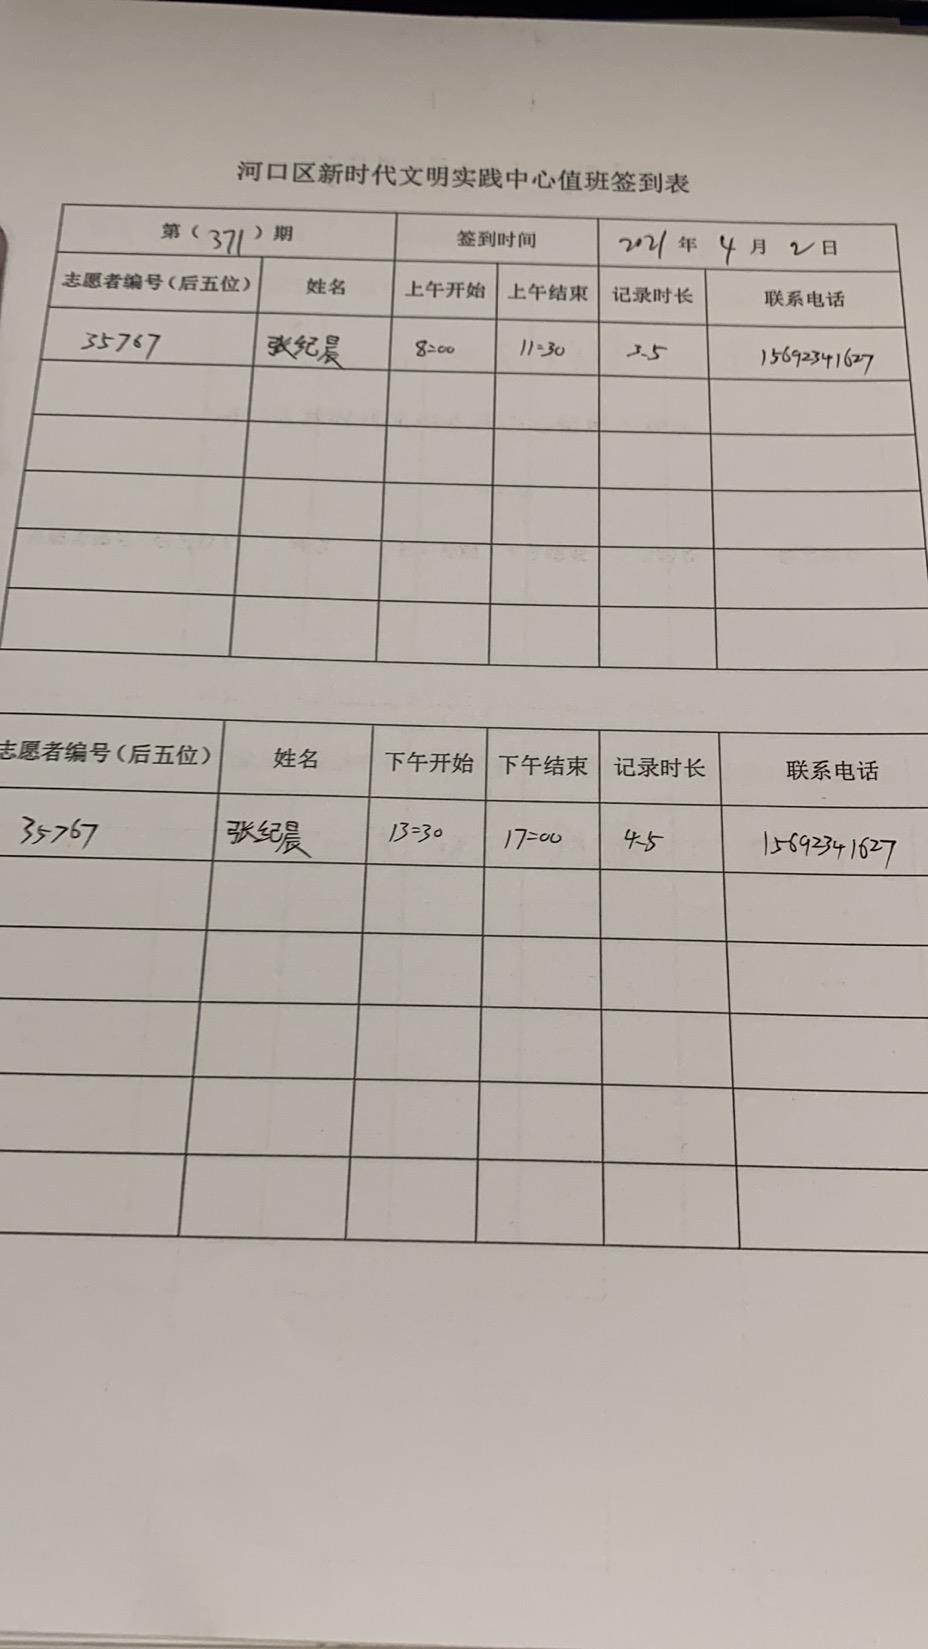 河口区新时代文明实践中心值班签到表
第（371）期 签到时间 2021年 4月 2日
志愿者编号（后五位） 姓名 上午开始 上午结束 记录时长 联系电话
35767 张纪晨 8:00 11:30 3.5 15692341627
志愿者编号（后五位） 姓名 下午开始 下午结束 记录时长 联系电话
35767 张纪晨 13:30 17:00 4.5 15692341627